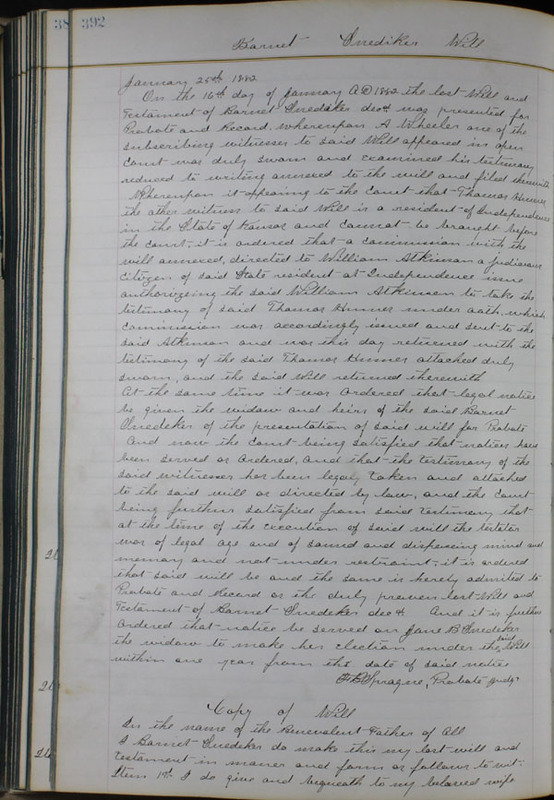 38 392
Barnet Snediker Will
January 25th 1882
On the 16th day of January AD 1882 the last Will and
Testament of Barnet Snediker decd was presented for
Probate and Record, whereupon A Wheeler one of the
subscribing witnesses to said Will appeared in open
Court was duly sworn and examined his testimony
reduced to writing annexed to the will and filed therewith
Whereupon it appearing to the Court that Thomas
the other witness to said Will is a resident of Independence
in the State of Kansas and cannot be brought before
the Court, it is ordered that a Commission with the
will annexed, directed to William Atkinson a judicious
Citizen of said State resident at Independence issue
authorizeing the said William Atkinson to take the
testimony of said Thomas under oath, which
Commission was accordingly issued and sent to the
said Atkinson and was this day returned with the
testimony of the said Thomas attached duly
sworn, and the said Will returned therewith
At the same time it was ordered that legal notice
be given the widow and heirs of the said Barnet
Snedeker of the presentation of said will for Probate
And now the Court being satisfied that notices have
been served as ordered, and that the testimony of the
said witnesses has been legaly taken and attached
to the said will as directed by law, and the Court
being further satisfied from said testimony that
at the time of the execution of said will the testator
was of legal age and of sound and disposeing mind and
memory and not under restraint, it is ordered
that said will be and the same is hereby admitted to
Probate and Record as the duly proven last Will and
Testament of Barnet Snedeker decd And it is further
ordered that notice be served on Jane B Snedeker
the widow to make her election under the said Will
within one year from the date of said notice
Sprague, Probate Judge
Copy of Will
In the name of the Benevolent Father of All
I Barnet Snedeker do make this my last will and
testament in maner and form as follows to wit:
Item 1st I do give and bequeath to my beloved wife